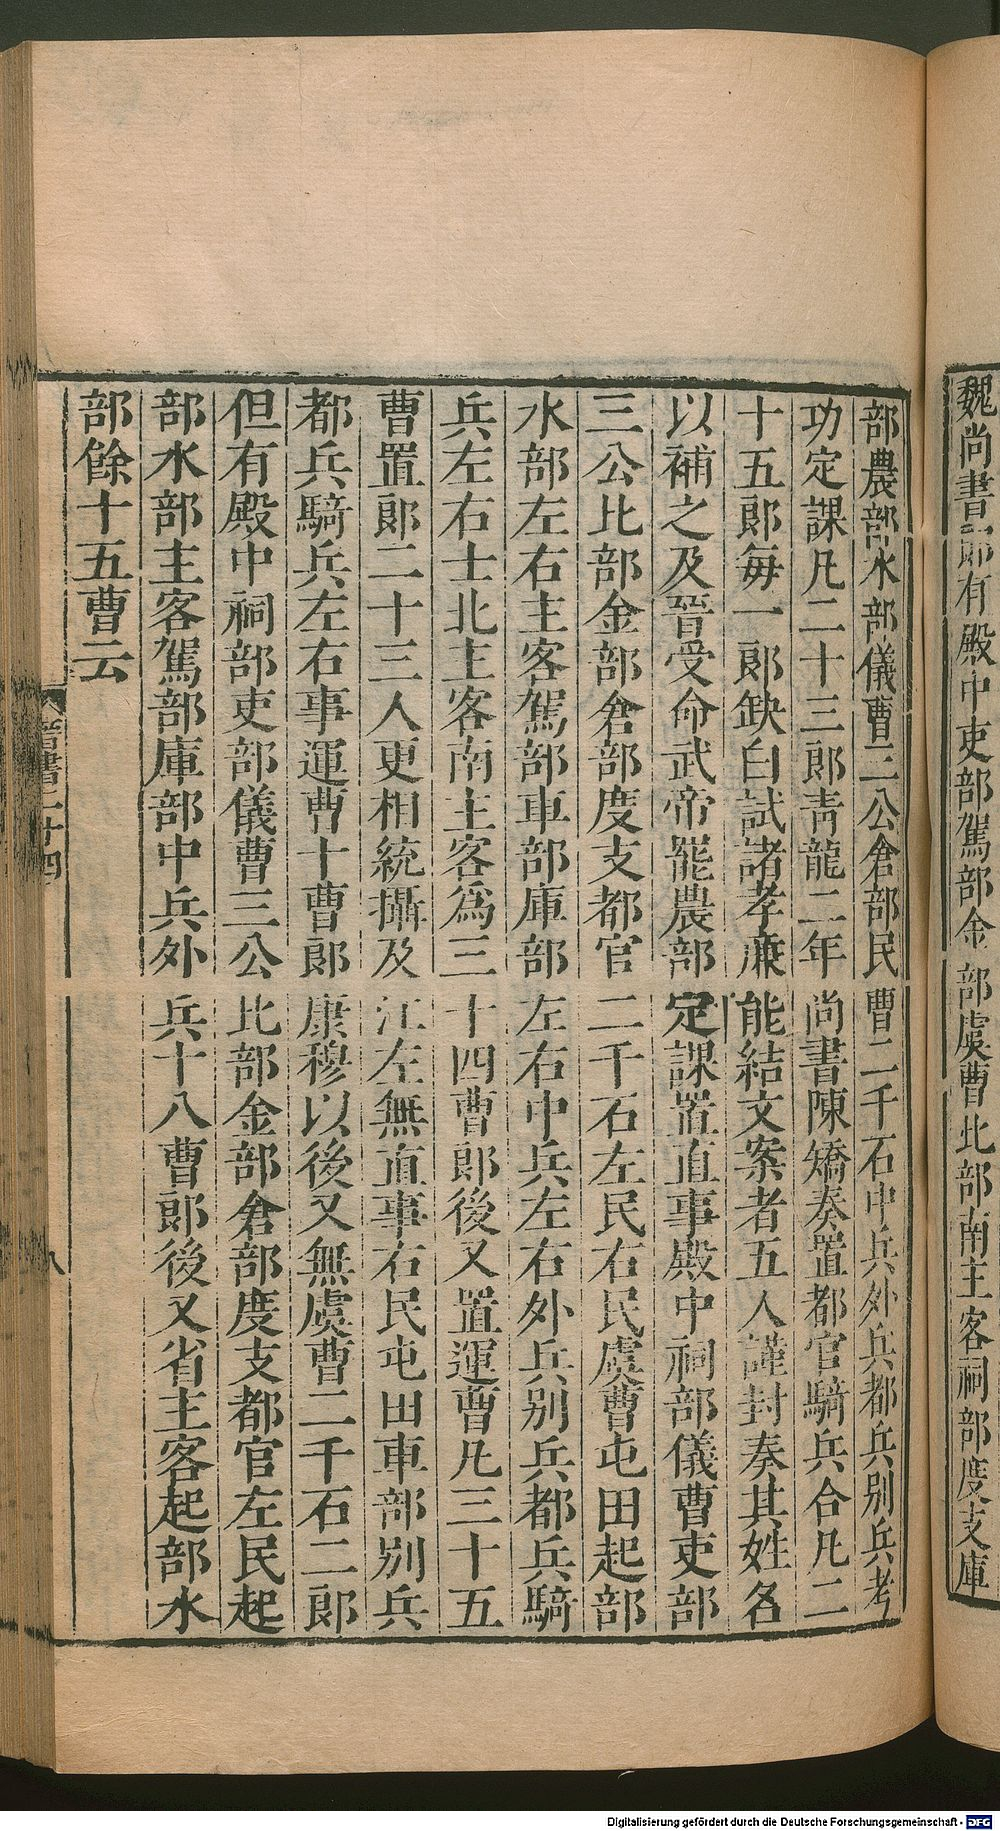 魏尚書郎有殿中吏部駕部金部虞曹比部南主客祠部度支庫
部農部水部儀曹三公倉部民曹二千石中兵外兵都兵别兵考
功定課凡二十三郎靑龍二年尚書陳矯奏置都官騎兵合凡二
十五郎每一郎缺白試諸孝廉能結文案者五人謹封奏其姓名
以補之及晉受命武帝罷農部定課置直事殿中祠部儀曹吏部
三公比部金部倉部度支都官二千石左民右民虞曹屯田起部
水部左右主客駕部車部庫部左右中兵左右外兵别兵都兵騎
兵左右士北主客南主客爲三十四曹郎後又置運曹凡三十五
曹置郎二十三人更相統攝及江左無直事右民屯田車部别兵
都兵騎兵左右事運曹十曹郎康穆以後又無虞曹二千石二郎
但有殿中祠部吏部儀曹三公比部金部倉部度支都官左民起
部水部主客駕部庫部中兵外兵十八曹郎後又省主客起部水
部餘十五曹云
晉書二十四
八
Digitalisierung gefördert durch die Deutsche Forschungsgemeinschaft - DFG